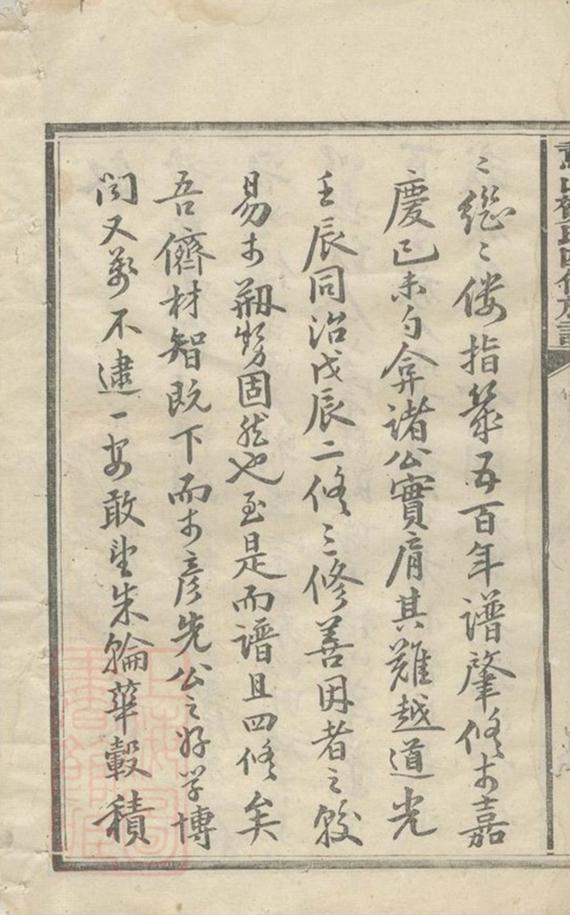 〻繼〻僂指篆五百年譜肇修於嘉
慶己未勺弇諸公實肩其難越道光
壬辰同治戊辰二修三修善因者之較
易於剏勢固然也至是而譜且四修矣
吾儕材智既下而於彥先公之好学博
闻又萬不逮一安敢望朱輪華轂積